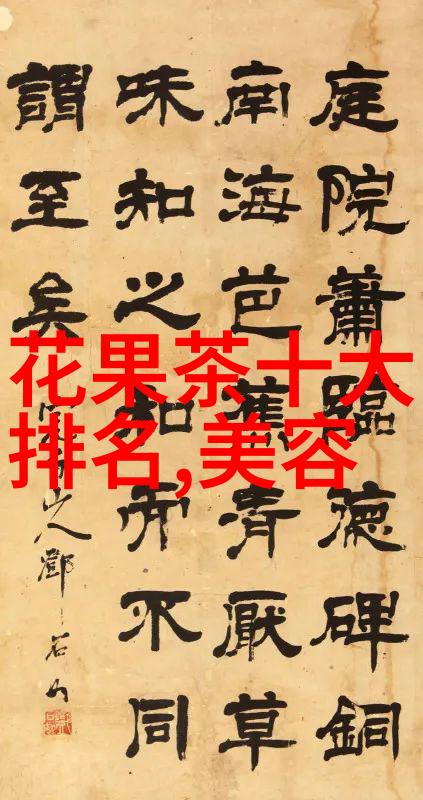 花果茶十大
排名,美容
庭院蕭臨德碑銅
南海芭蕉青厭草
味知之不同
謂至矣
山人鄧石如